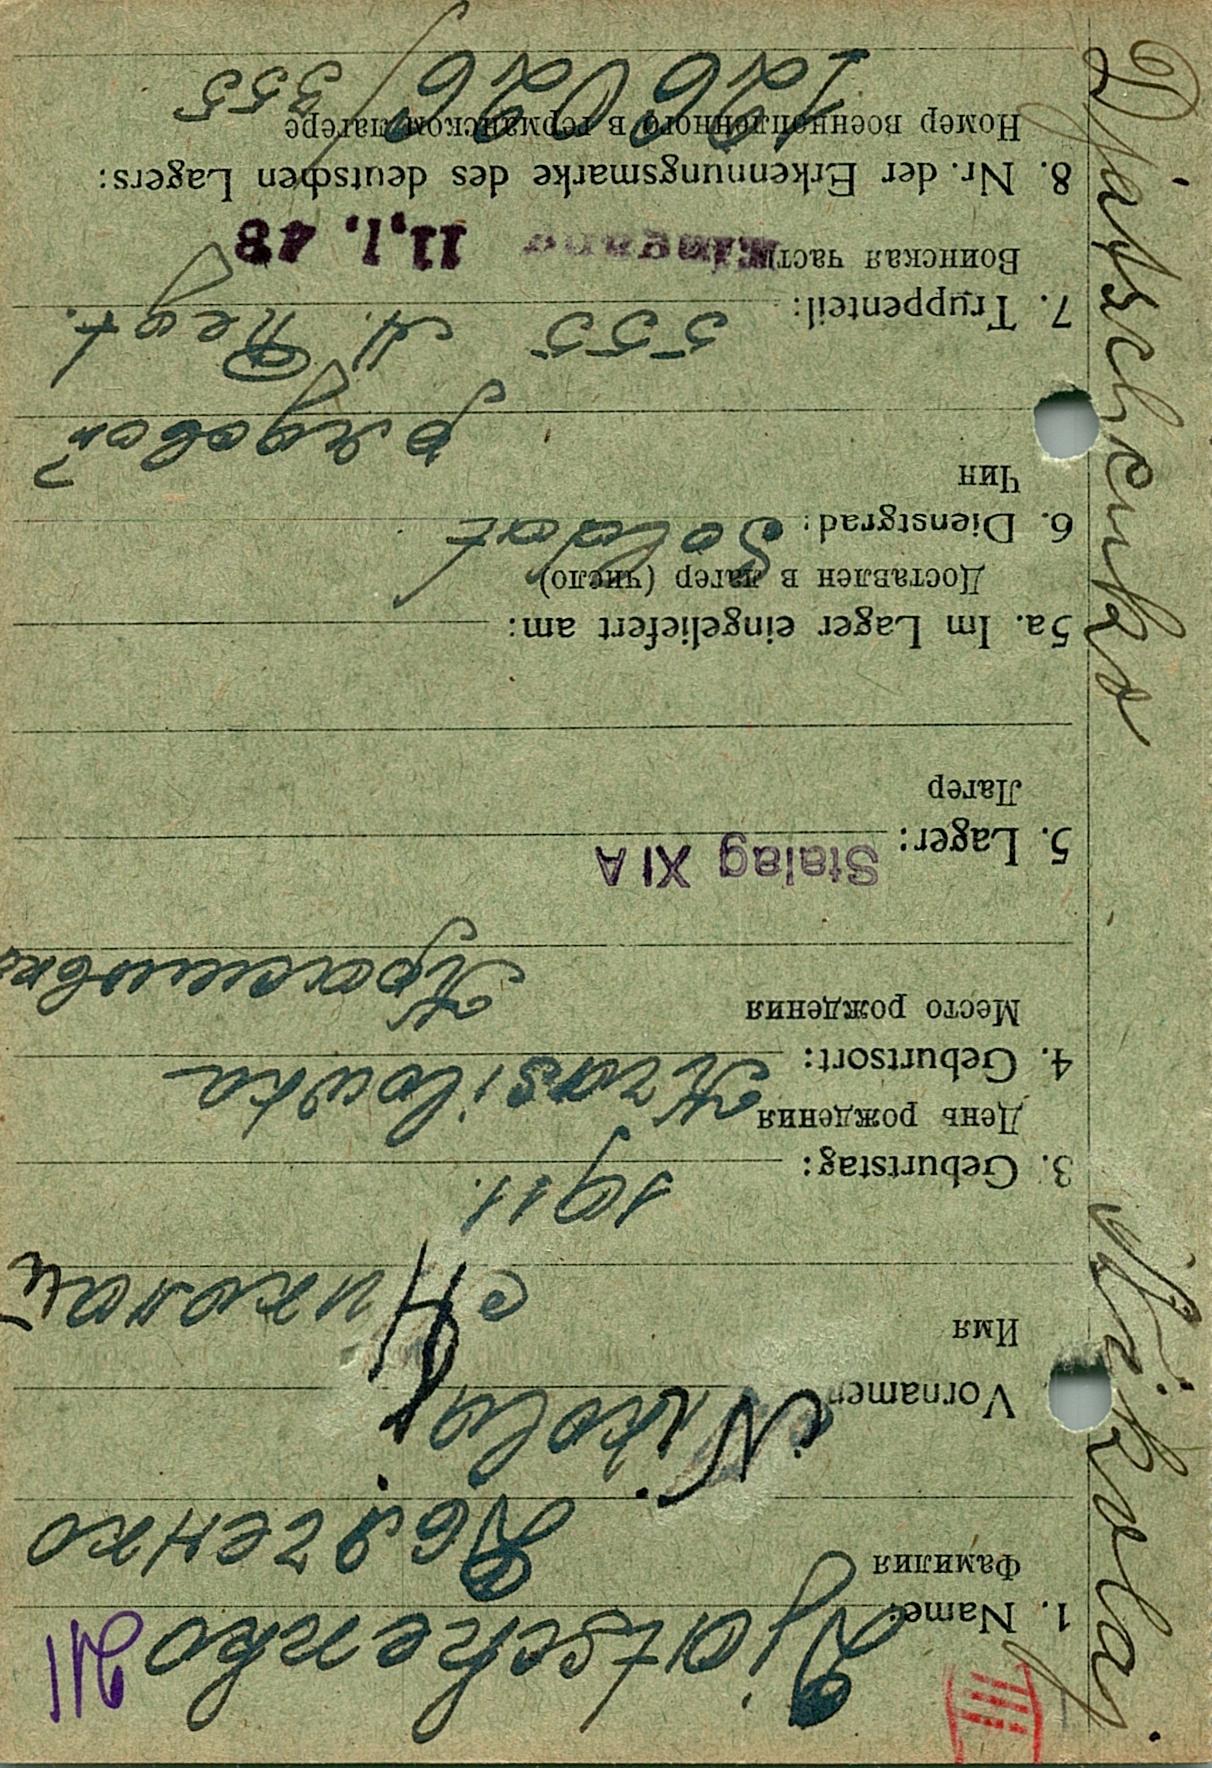 III
211
1. Name: Djatschenko
Фамилия Дьяченко
Vornamen Nikolaj
Имя Николай
3. Geburtstag: 1911.
День рождения
4. Geburtsort: Krasilowka
Место рождения Красиловка
5. Lager: Stalag XI A
Лагер
5a. Im Lager eingeliefert am:
Доставлен в лагер (число)
6. Dienstgrad: Soldat
Чин рядовой
7. Truppenteil: 555 A. Regt.
Воинская часть Eingang 11. 1. 43
8. Nr. der Erkennungsmarke des deutschen Lagers:
Номер военнопленного в германском лагере
126026/355
Djatschenko Nikolaj.